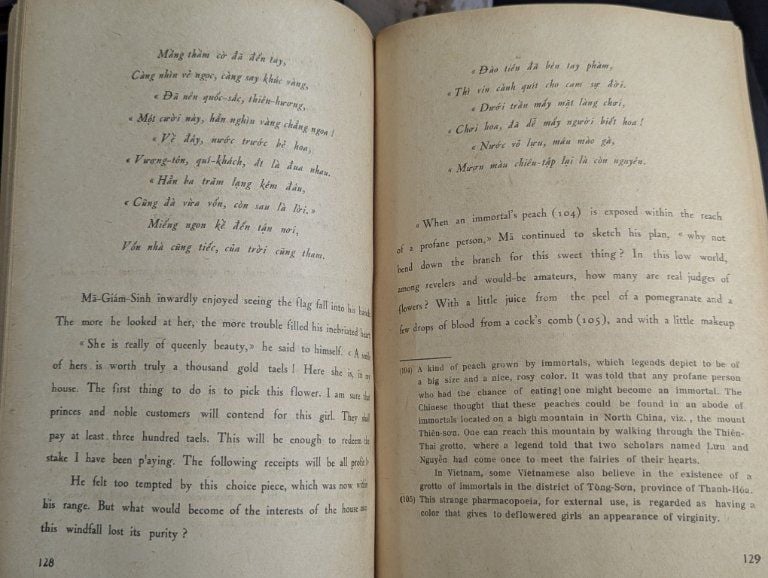 Mảng thầm cờ đã đến tay,
Càng nhìn vẻ ngọc, càng say khúc vàng,
« Đã nên quốc-sắc, thiên-hương,
« Một cười này, hẳn nghìn vàng chẳng ngoa !
« Về đây, nước trước bẻ hoa,
« Vương-tôn, quí-khách, ắt là đua nhau.
« Hẳn ba trăm lạng kém đâu,
« Cũng đà vừa vốn, còn sau là lời.»
Miếng ngon kề đến tận nơi,
Vốn nhà cũng tiếc, của trời cũng tham.
Mã-Giám-Sinh inwardly enjoyed seeing the flag fall into his
The more he looked at her, the more trouble filled his inebriated heart
« She is really of queenly beauty,» he said to himself. « A smile
of hers is worth truly a thousand gold taels ! Here she is, in my
house. The first thing to do is to pick this flower. I am sure that
princes and noble customers will contend for this girl. They shall
pay at least three hundred taels. This will be enough to redeem the
stake I have been p'aying. The following receipts will be all profit.»
He felt too tempted by this choice piece, which was now within
his range. But what would become of the interests of the house
this windfall lost its purity ?
128
« Đào tiên đã bén tay phàm,
« Thì vin cành quít cho cam sự đời.
« Dưới trần mấy mặt làng chơi,
« Chơi hoa, đã dễ mấy người biết hoa !
« Nước vỏ lựu, máu mào gà,
« Mượn màu chiêu-tập lại là còn nguyên.
« When an immortal's peach (104) is exposed within the reach
of a profane person,» Mã continued to sketch his plan, « why not
bend down the branch for this sweet thing ? In this low world,
among revelers and would-be amateurs, how many are real judges of
flowers ? With a little juice from the peel of a pomegranate and a
few drops of blood from a cock's comb (105), and with a little makeup
(104) A kind of peach grown by immortals, which legends depict to be of
a big size and a nice, rosy color. It was told that any profane person
who had the chance of eating] one might become an immortal. The
Chinese thought that these peaches could be found in an abode of
immortals located on a high mountain in North China, viz. , the mount
Thiên-sơn. One can reach this mountain by walking through the Thiên-
Thai grotto, where a legend told that two scholars named Lưu and
Nguyễn had come once to meet the fairies of their hearts.
In Vietnam, some Vietnamese also believe in the existence of a
grotto of immortals in the district of Tòng-Sơn, province of Thanh-Hóa.
(105) This strange pharmacopoeia, for external use, is regarded as having a
color that gives to deflowered girls an appearance of virginity.
129